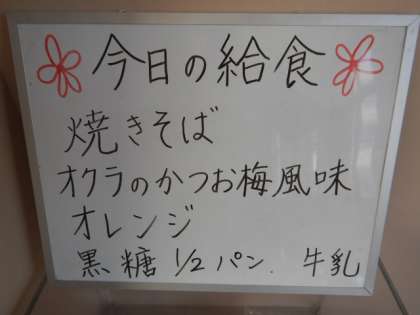 今日の給食
焼きそば
オクラのかつお梅風味
オレンジ
黒糖1/2パン. 牛乳